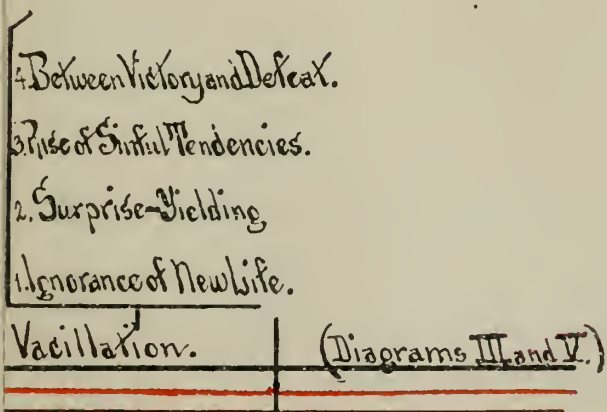 4. Between Victory and Defeat.
3. Rise of Sinful Tendencies.
2. Surprise-Yielding
1. Ignorance of New Life.
Vacillation. (Diagrams III and V.)